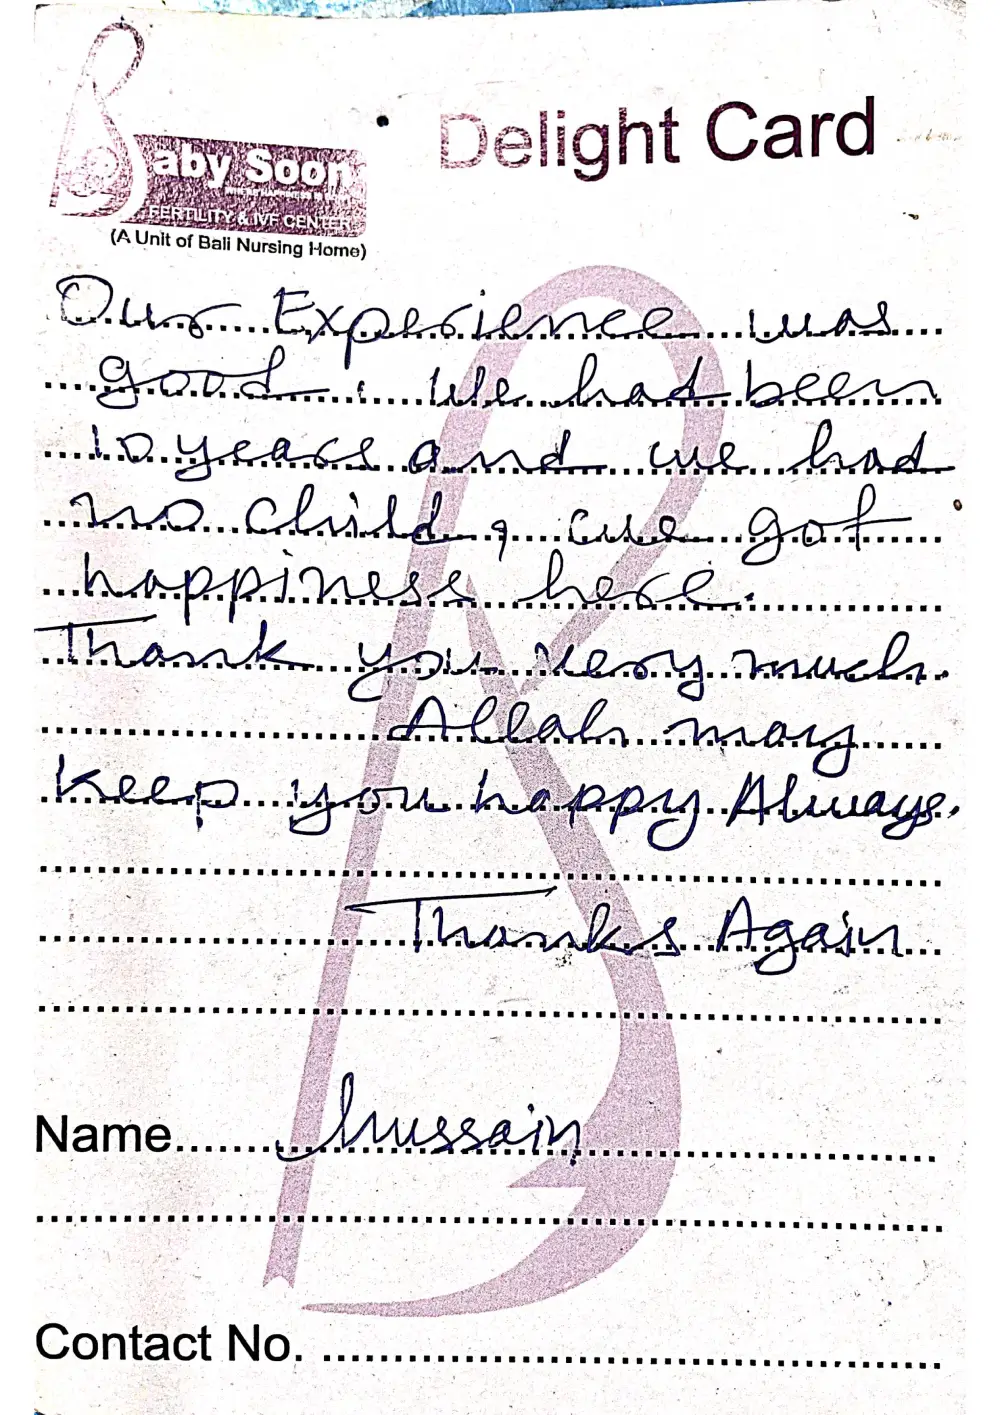 Baby Soon
FERTILITY & IVF CENTER
(A Unit of Bali Nursing Home)
Delight Card
Our Experience was
good. We had been
10 years and we had
no child, we got
happiness here.
Thank you very much.
Allah may
keep you happy Always.
Thanks Again
Name Hussain
Contact No.